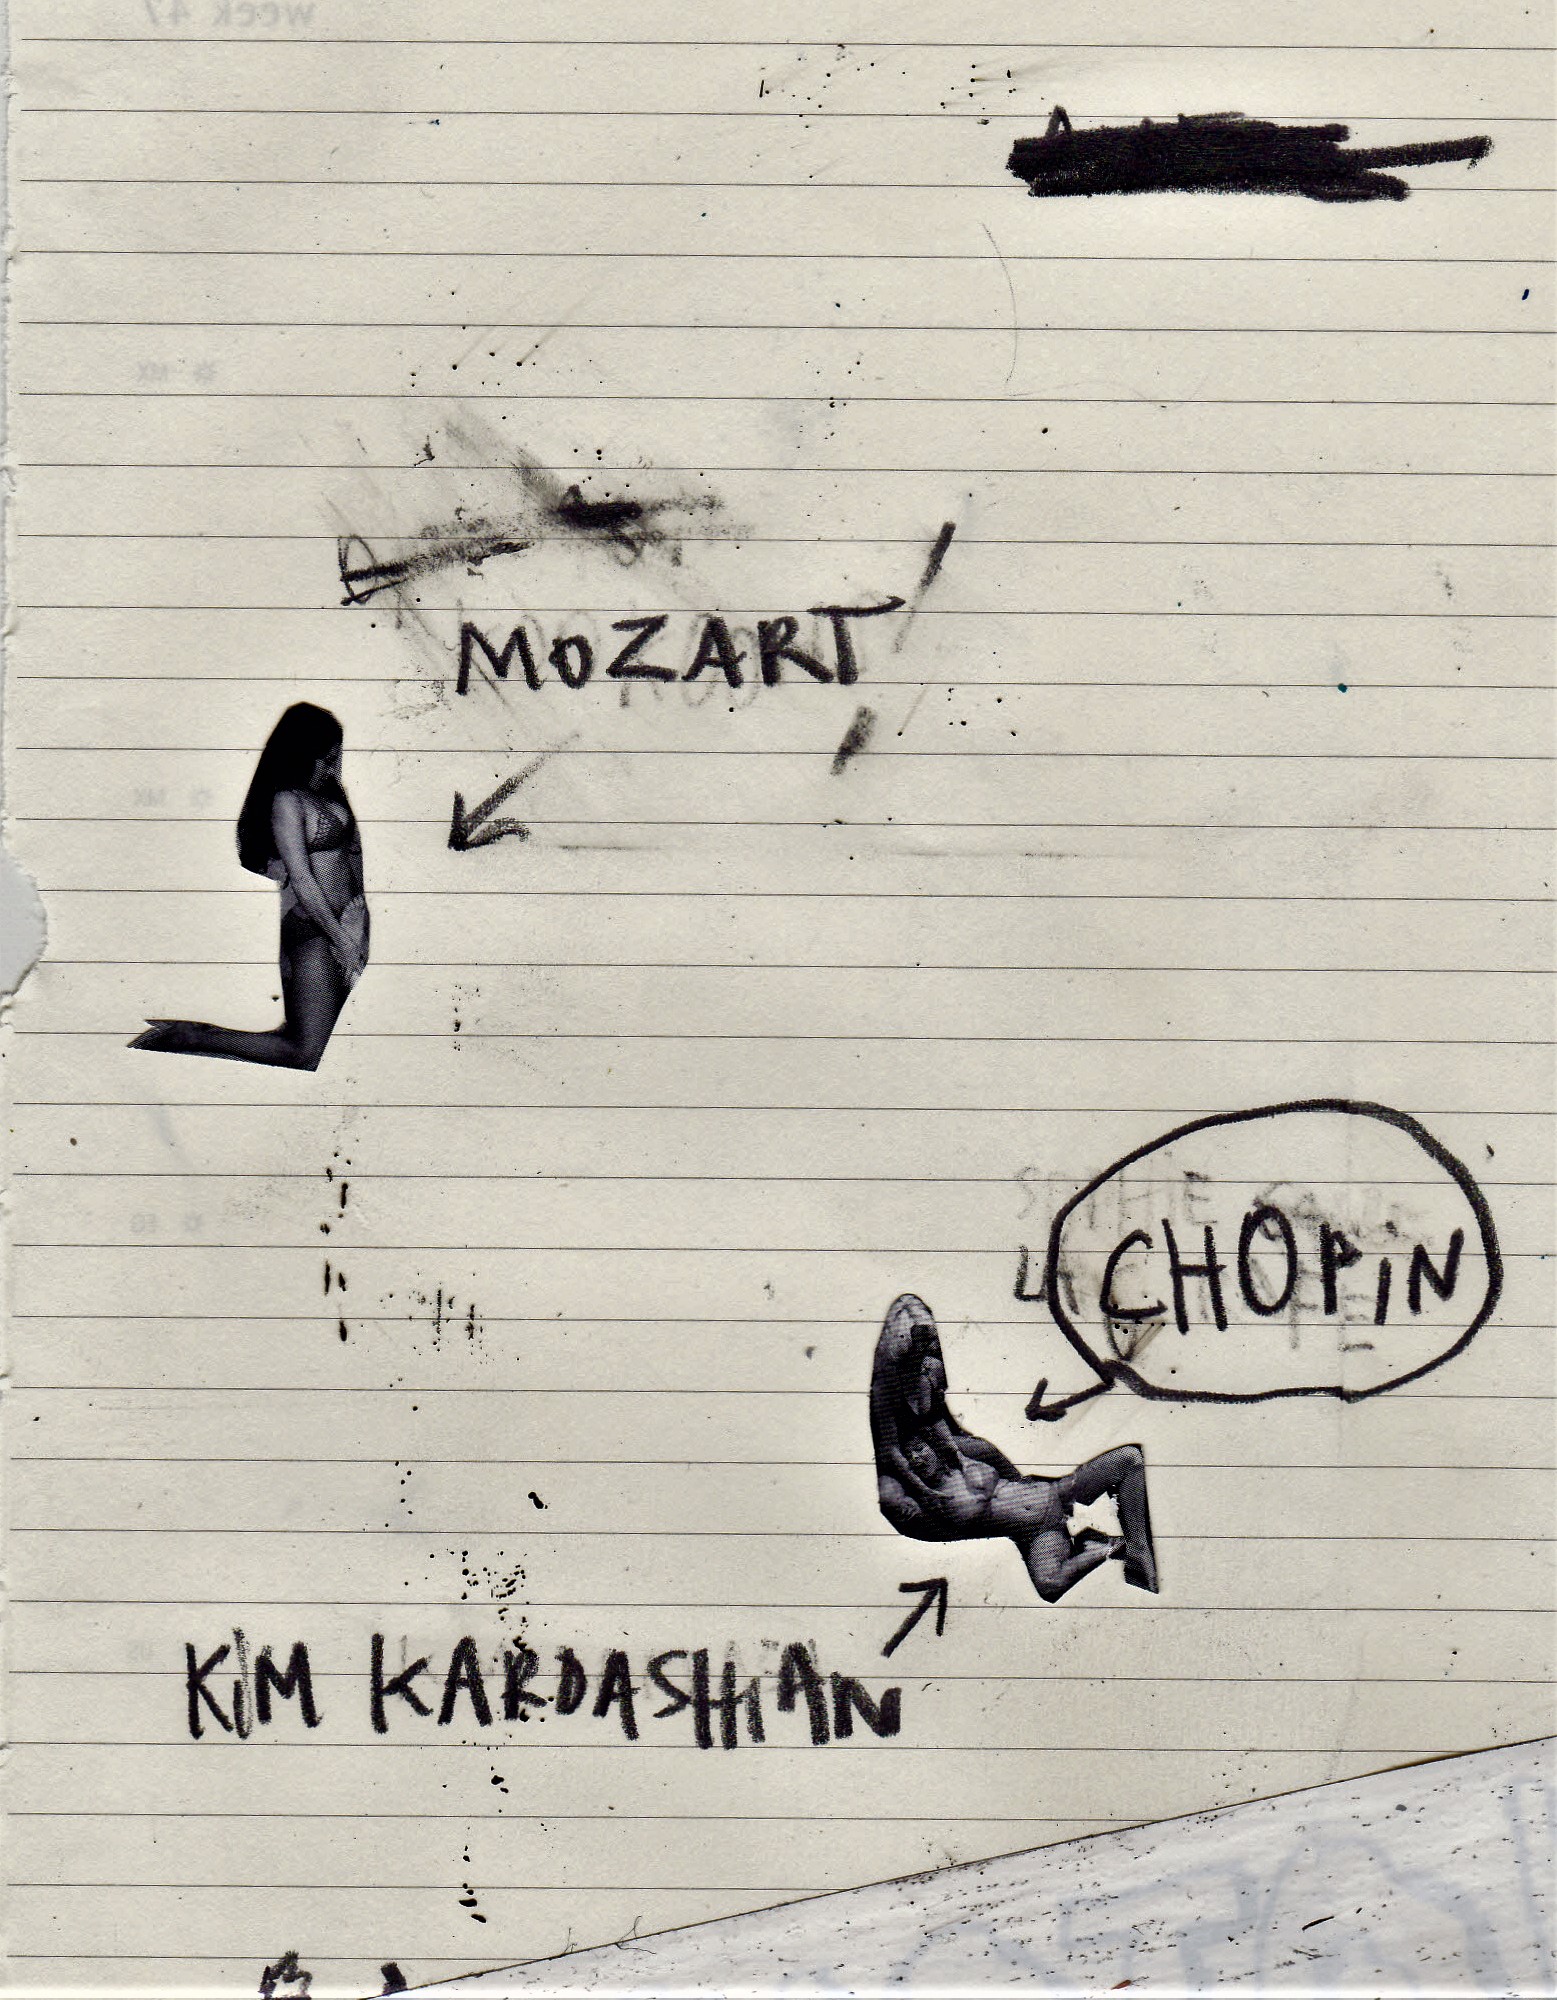 week 47
MOZART
CHOPiN
KiM KARDASHiAN